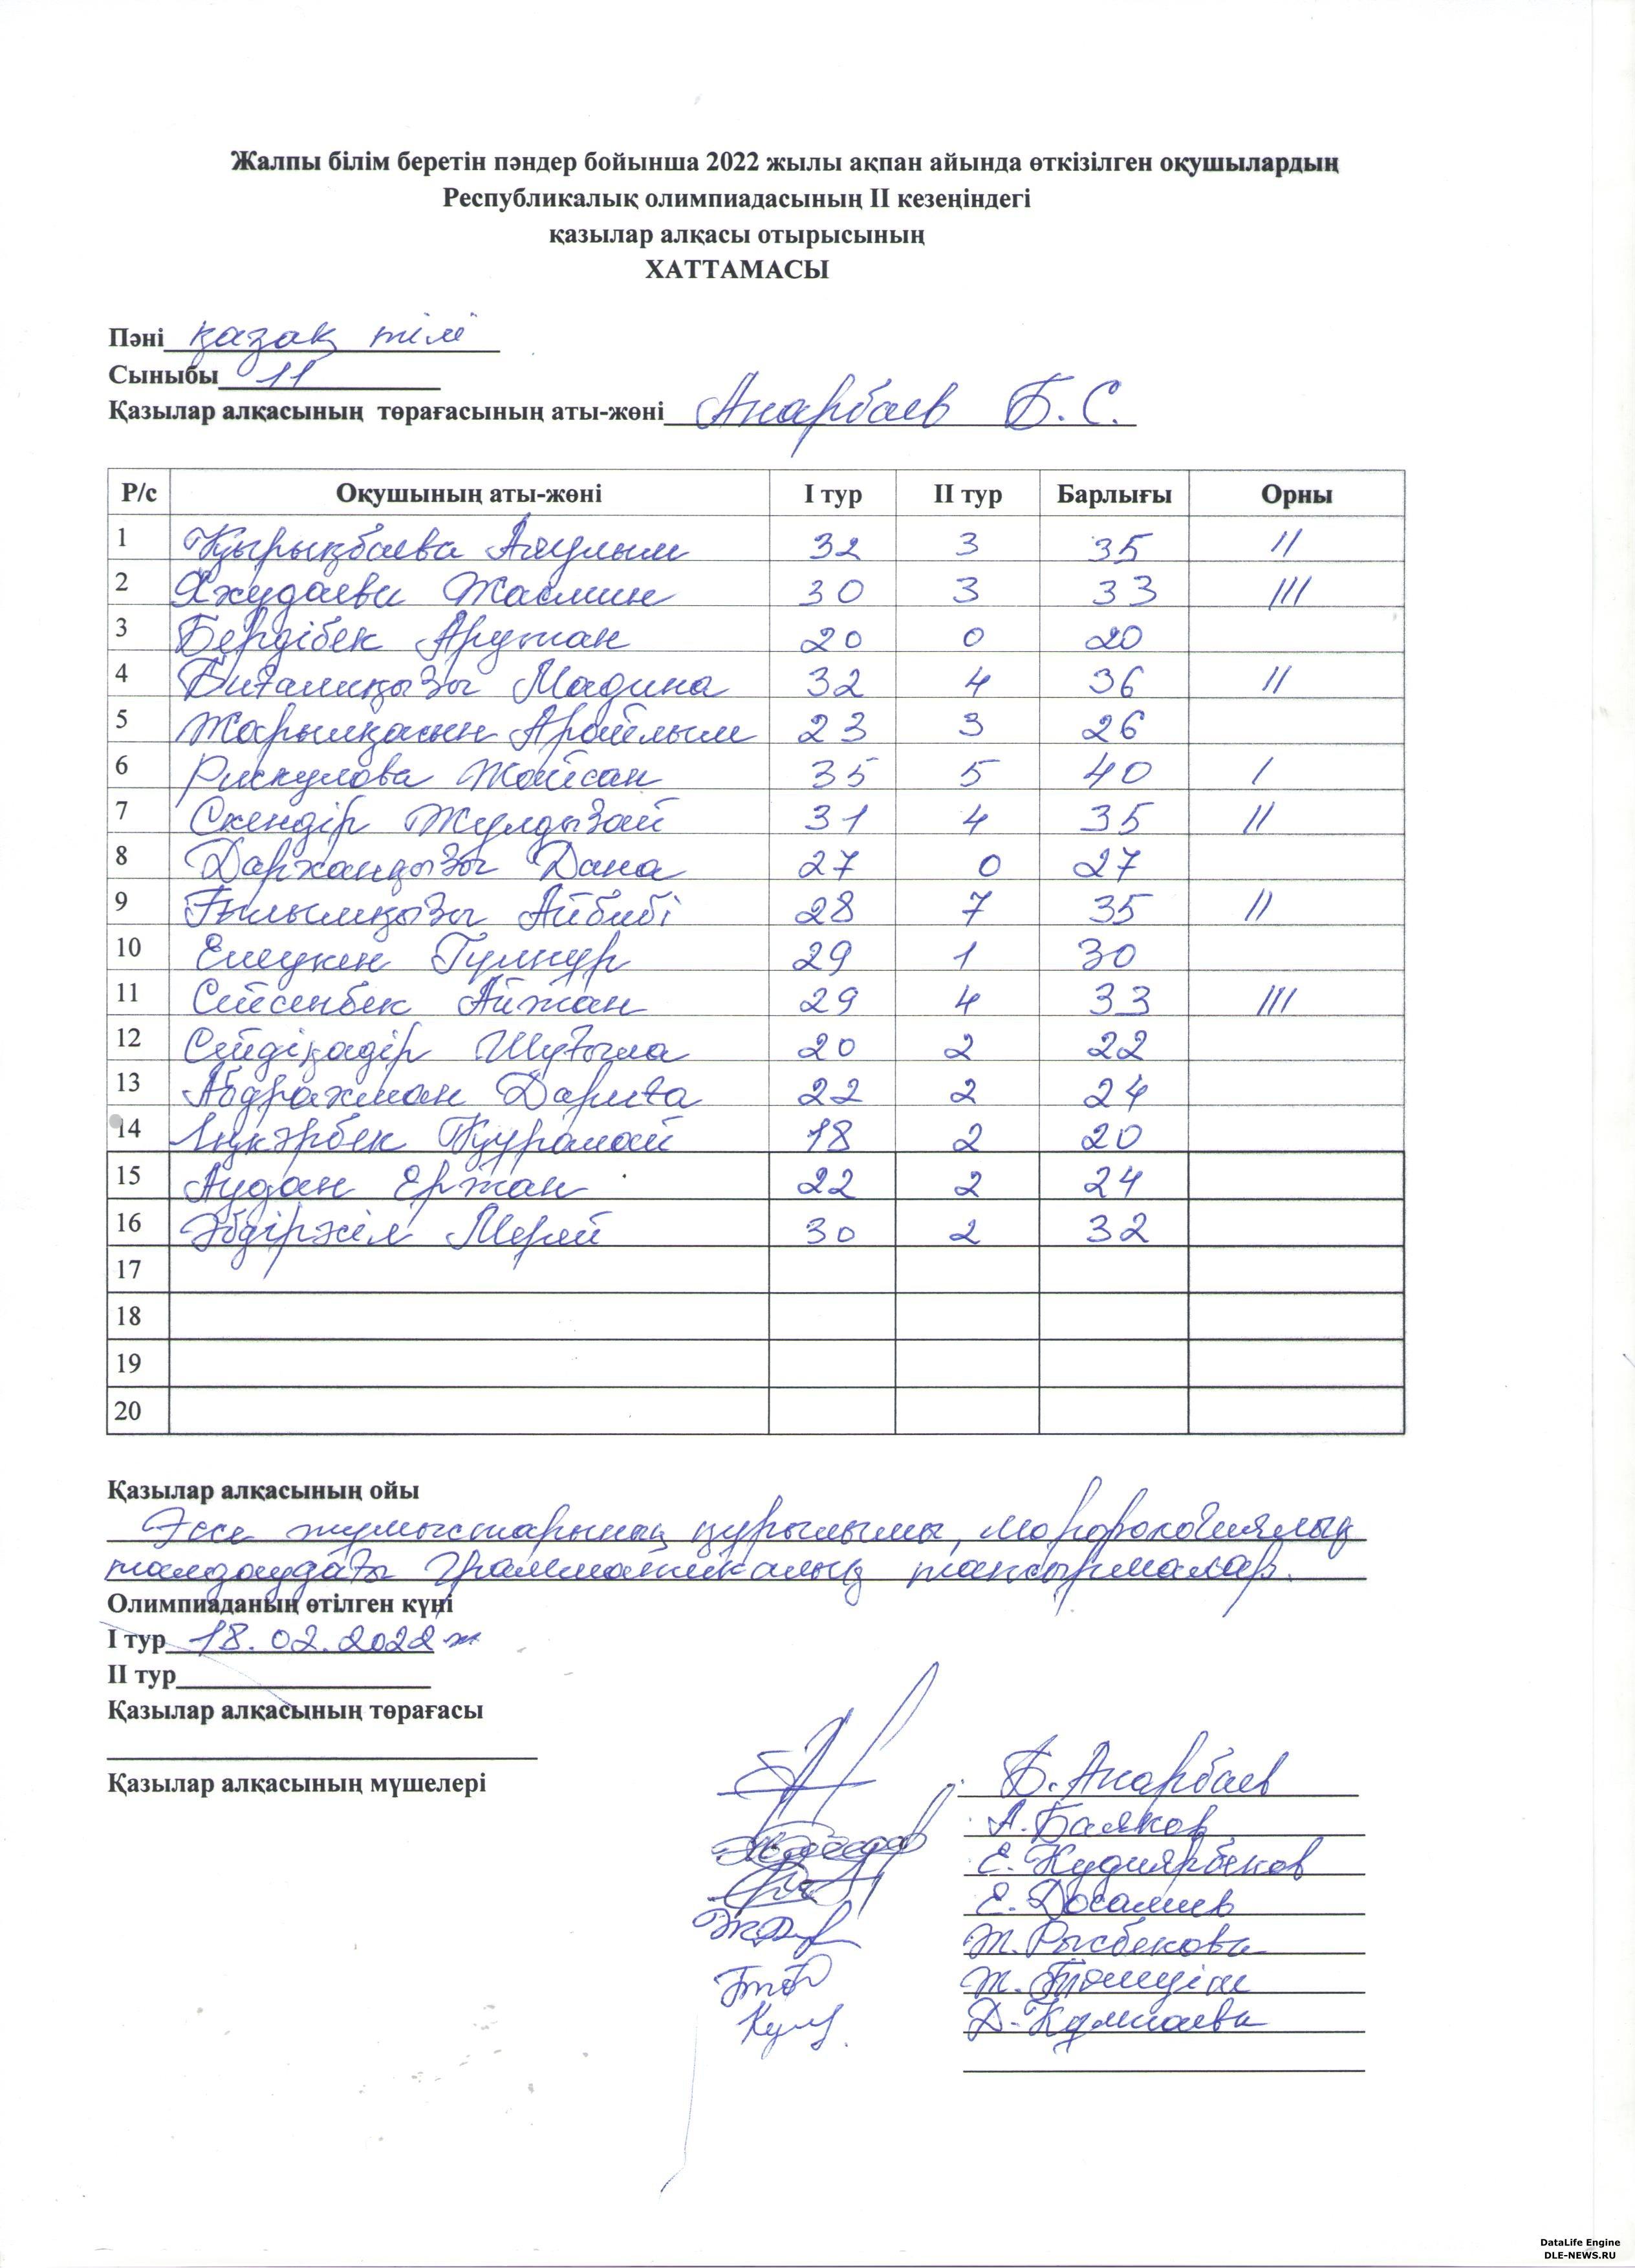 Жалпы білім беретін пәндер бойынша 2022 жылы ақпан айында өткізілген оқушылардың
Республикалық олимпиадасының II кезеңіндегі
қазылар алқасы отырысының
ХАТТАМАСЫ
Пәні қазақ тілі
Сыныбы 11
Қазылар алқасының төрағасының аты-жөні Анарбаев Б. С.
Р/с Оқушының аты-жөні I тур II тур Барлығы Орны
1 Қырықбаева Аяулым 32 3 35 II
2 Яхудаева Жасмин 30 3 33 III
3 Бердібек Аружан 20 0 20
4 Биғалиқызы Мадина 32 4 36 II
5 Жарылқасын Арайлым 23 3 26
6 Рискулова Жайсан 35 5 40 I
7 Скендір Жулдызай 31 4 35 II
8 Дарханқызы Дана 27 0 27
9 Ғылымқызы Айбибі 28 7 35 II
10 Елеукен Гулнур 29 1 30
11 Сейсенбек Айжан 29 4 33 III
12 Сейдіқадір Шуғыла 20 2 22
13 Абдрахман Дариға 22 2 24
14 Қуралай 18 2 20
15 Аудан Ержан 22 2 24
16 Әбдіржіл Мерей 30 2 32
17
18
19
20
Қазылар алқасының ойы
Эссе жумыстарының құрылымы, морфологиялық
талдаудағы грамматикалық тапсырмалар.
Олимпиаданың өтілген күні
I тур 18. 02. 2022 ж
II тур
Қазылар алқасының төрағасы
Қазылар алқасының мүшелері
Б. Анарбаев
А. Баяков
Е. Кудиярбеков
Е. Досалиев
Ж. Рысбекова
Ж.
Д. Қ
DataLife Engine
DLE-NEWS.RU